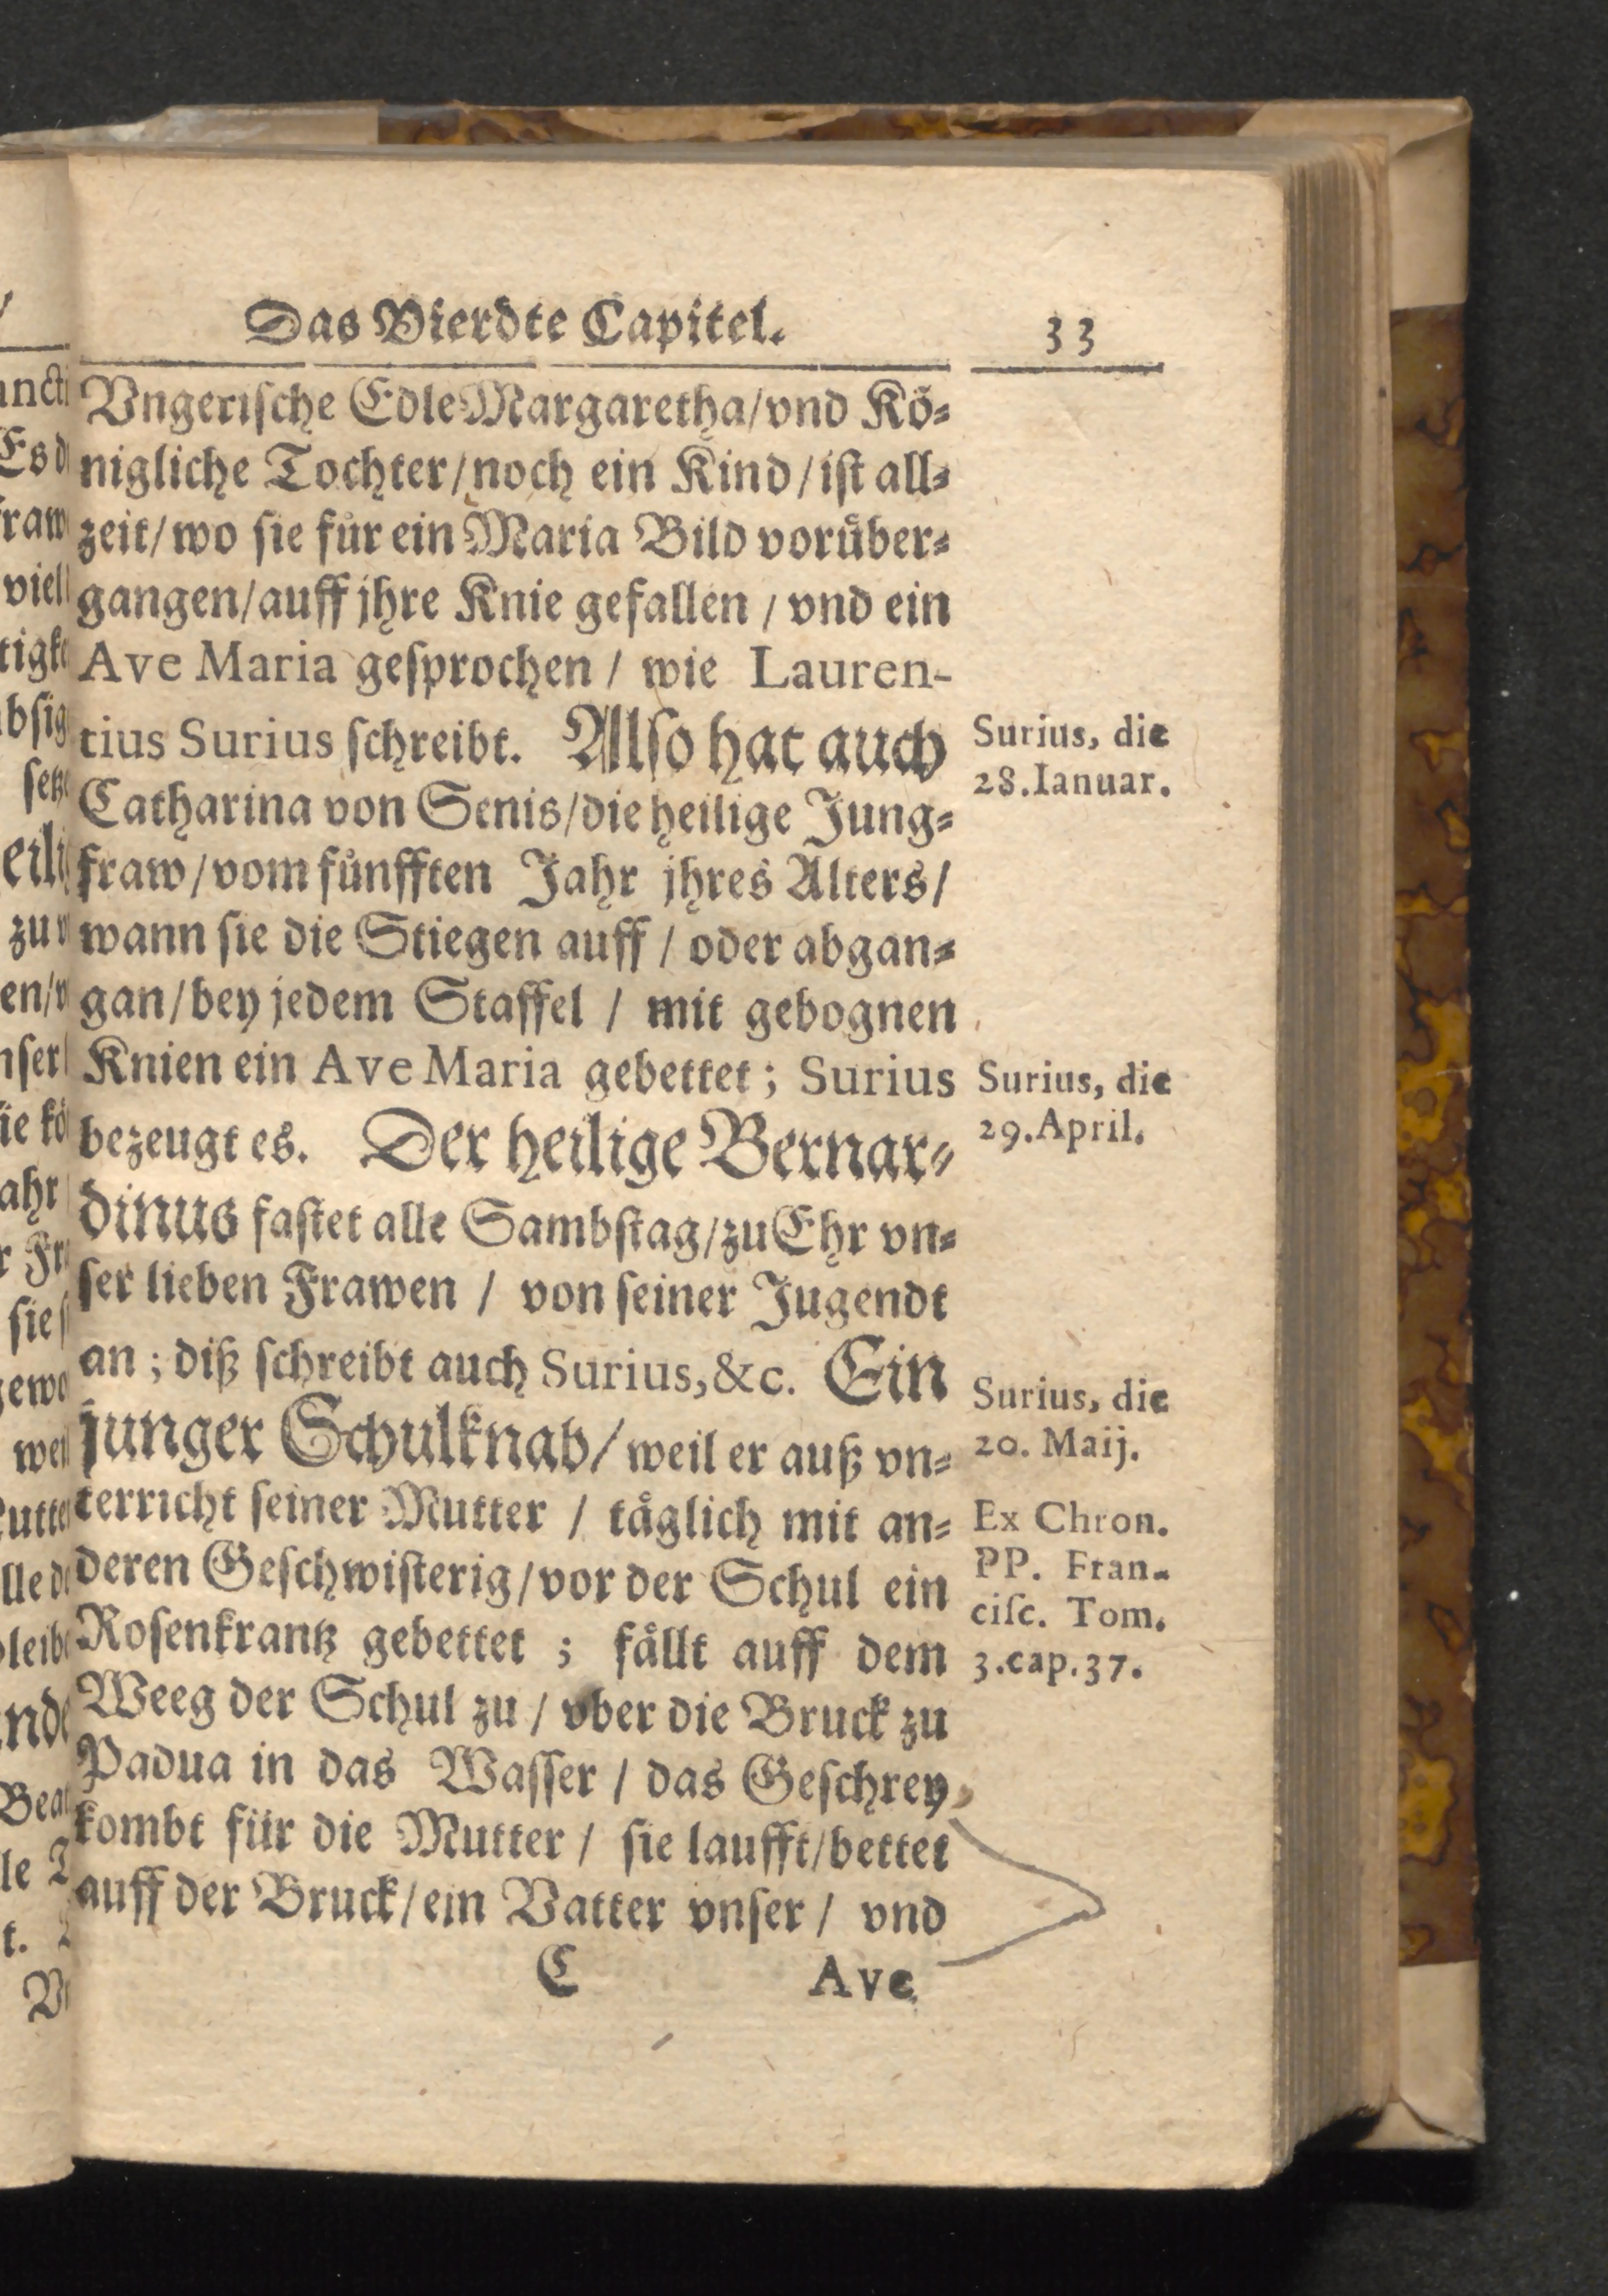 Das Vierdte Capitel. 33
Vngerische Edle Margaretha/vnd Kö⸗
nigliche Tochter/noch ein Kind/ist all⸗
zeit/wo sie für ein Maria Bild vorüber⸗
gangen/auff jhre Knie gefallen / vnd ein
Ave Maria gesprochen / wie Lauren-
tius Surius schreibt. Also hat auch
Catharina von Senis/die heilige Jung⸗
fraw/vom fünfften Jahr jhres Alters/
wann sie die Stiegen auff / oder abgan⸗
gan/bey jedem Staffel / mit gebognen
Knien ein Ave Maria gebettet; Surius
bezeugt es. Der heilige Bernar⸗
dinus fastet alle Sambstag/zu Ehr vn⸗
ser lieben Frawen / von seiner Jugendt
an; diß schreibt auch Surius,&c. Ein
junger Schulknab/weil er auß vn⸗
terricht seiner Mutter / täglich mit an⸗
deren Geschwisterig/vor der Schul ein
Rosenkrantz gebettet ; fällt auff dem
Weeg der Schul zu / vber die Bruck zu
Padua in das Wasser / das Geschrey
kombt für die Mutter / sie laufft/bettet
auff der Bruck/ein Vatter vnser / vnd
C Ave
Surius, die
28.Ianuar.
Surius, die
29.April.
Surius, die
20. Maij.
Ex Chron.
PP. Fran-
cisc. Tom.
3.cap.37.